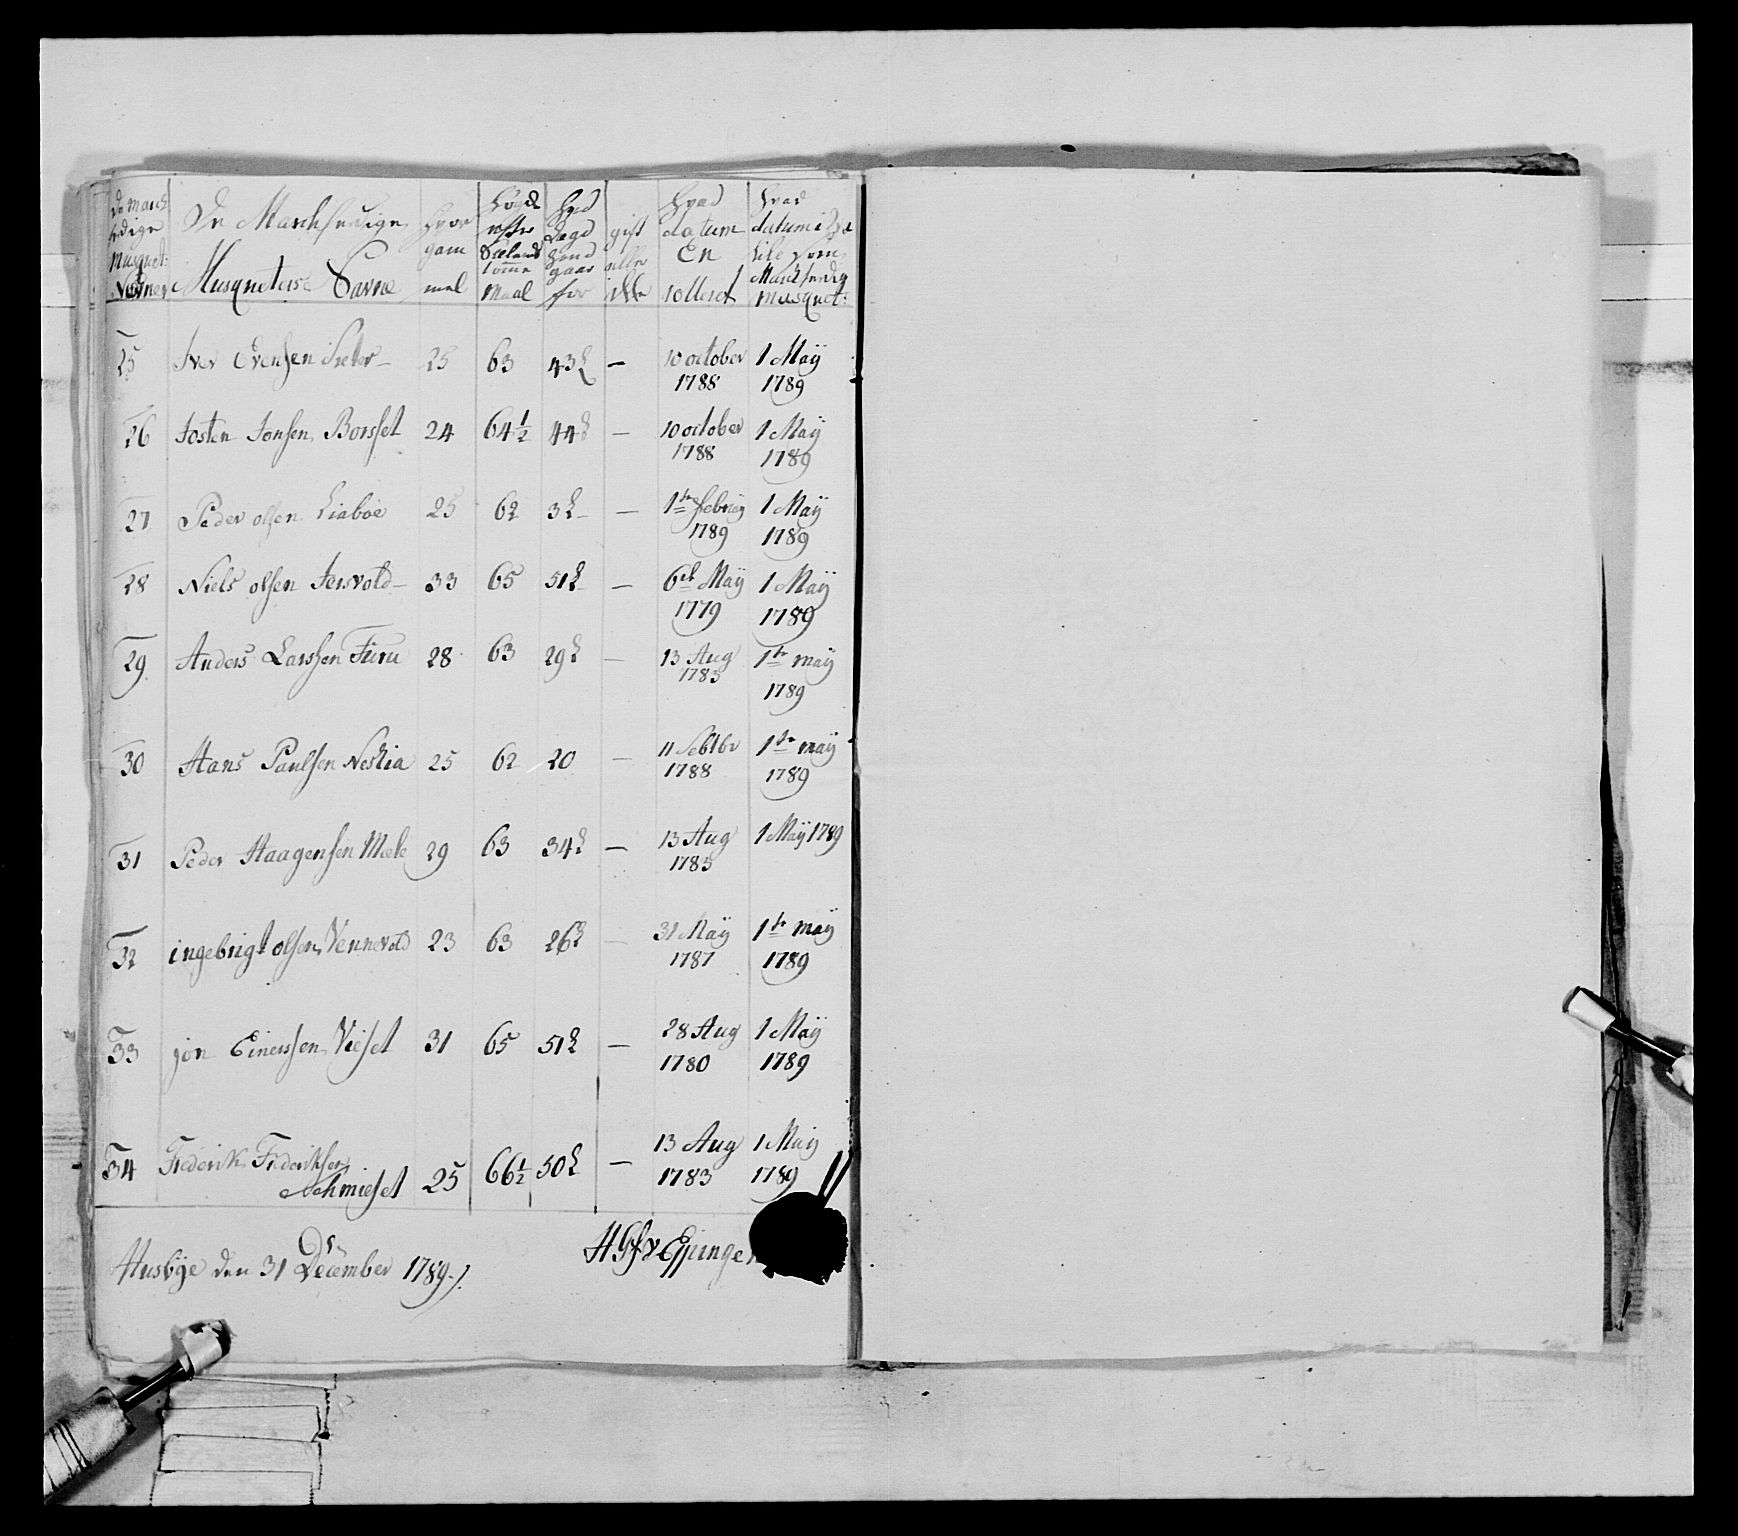 De March De Marchferdige Hvor Høyde Hvad gift Hvad Hvad
ferdige gam efter Lægd eller datum datum i
Musquet: Musqueteers Navne mel Sælands gaar ikke En som
tomme for rolleret Marchferdig
Maal Musquet:
25 Iver Evensen Sæter 25 63 43 — 10 october 1 Maÿ
1788 1789
26 Josten Jonsen Borsset 24 64½ 44 — 10 october 1 Maÿ
1788 1789
27 Peder olsen Liaboe 25 62 3 — 1te febrÿ 1 Maÿ
1789 1789
28 Niels olsen Jersvold 33 65 51 — 6te Maÿ 1 Maÿ
1779 1789
29 Anders Larssen Furu 28 63 29 — 13 Aug 1te maÿ
1783 1789
30 Hans Paulsen Neslia 25 62 20 — 11 Sebtbr 1te maÿ
1788 1789
31 Peder Haagensen Mæle 29 63 34 — 13 Aug 1 Maÿ 1789
1783
32 ingebrigt olsen Vennevold 23 63 26 — 31 Maÿ 1te maÿ
1787 1789
33 jon Einerssen Vieset 31 65 51 — 28 Aug 1 Maÿ
1780 1789
34 Frederik Frederiksen 13 Aug 1 Maÿ
Schmieset 25 66½ 50 — 1783 1789
Husbÿe den 31 December 1789